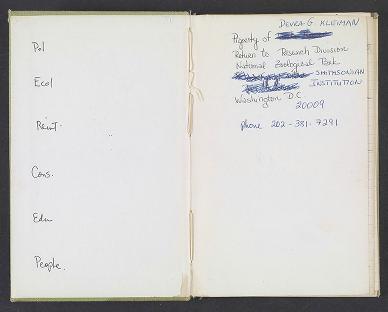 Pol
Ecol
Reint.
Cons.
Edu
People.
DEVRA G KLEIMAN
Property of
Return to Research Division
National Zoological Park
SMITHSONIAN
INSTITUTION
Washington D.C
20009
phone 202-381-7291